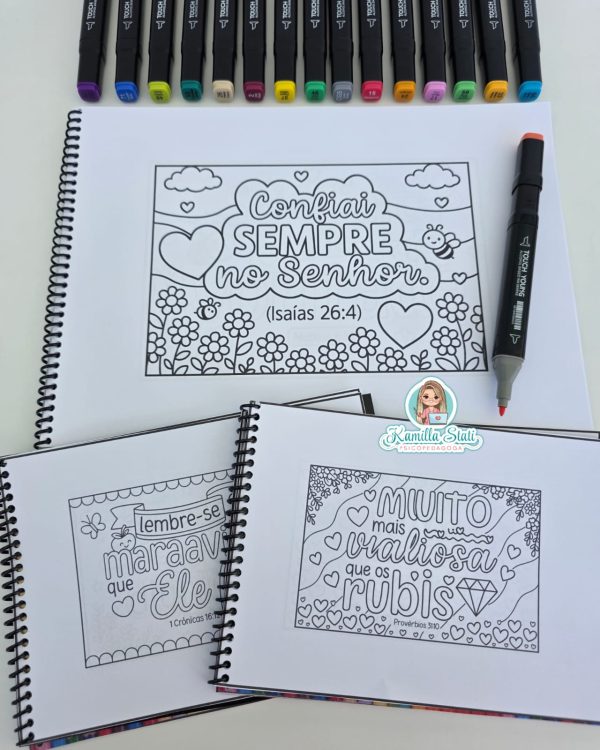 TOUCH
Confiai
SEMPRE
no Senhor.
(Isaías 26:4)
TOUCH YOUNG
Kamilla Stati
PSICOPEDAGOGA
lembre-se
maraav
que
Ele
1 Crônicas 16:1
MUITO
mais
vialiosa
que os
rubis
Provérbios 31:10